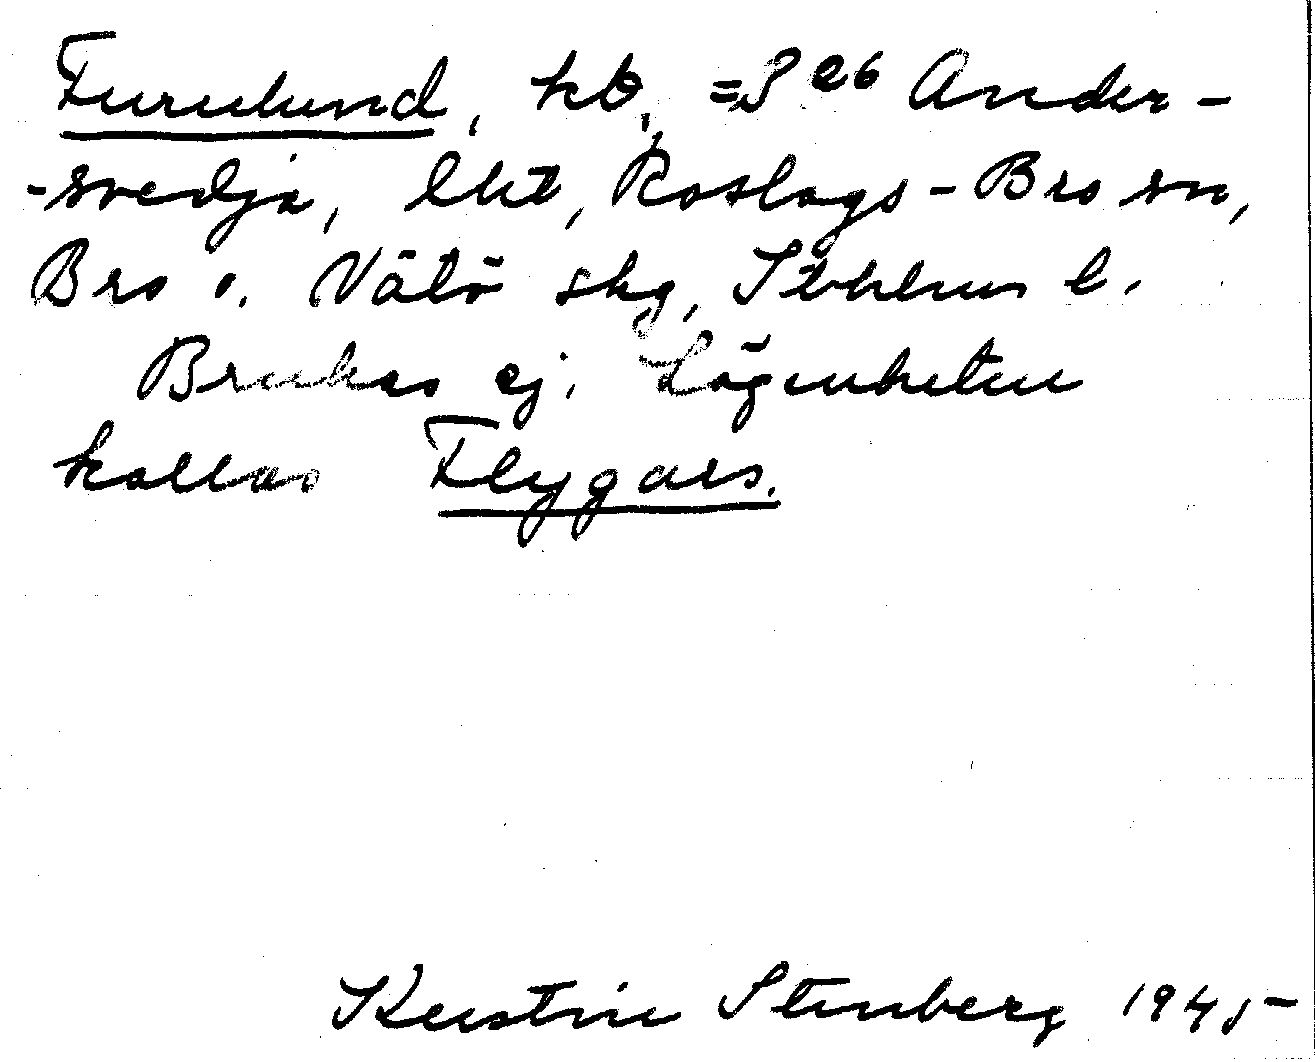 Furulund, kb, =1²⁶ Ander-
-svedja, lht, Roslags-Bro sn,
Bro o. Vätö skg, Sthlms l.
Brukas ej. Lägenheten
kallas Flygars.
Kerstin Stenberg 1945